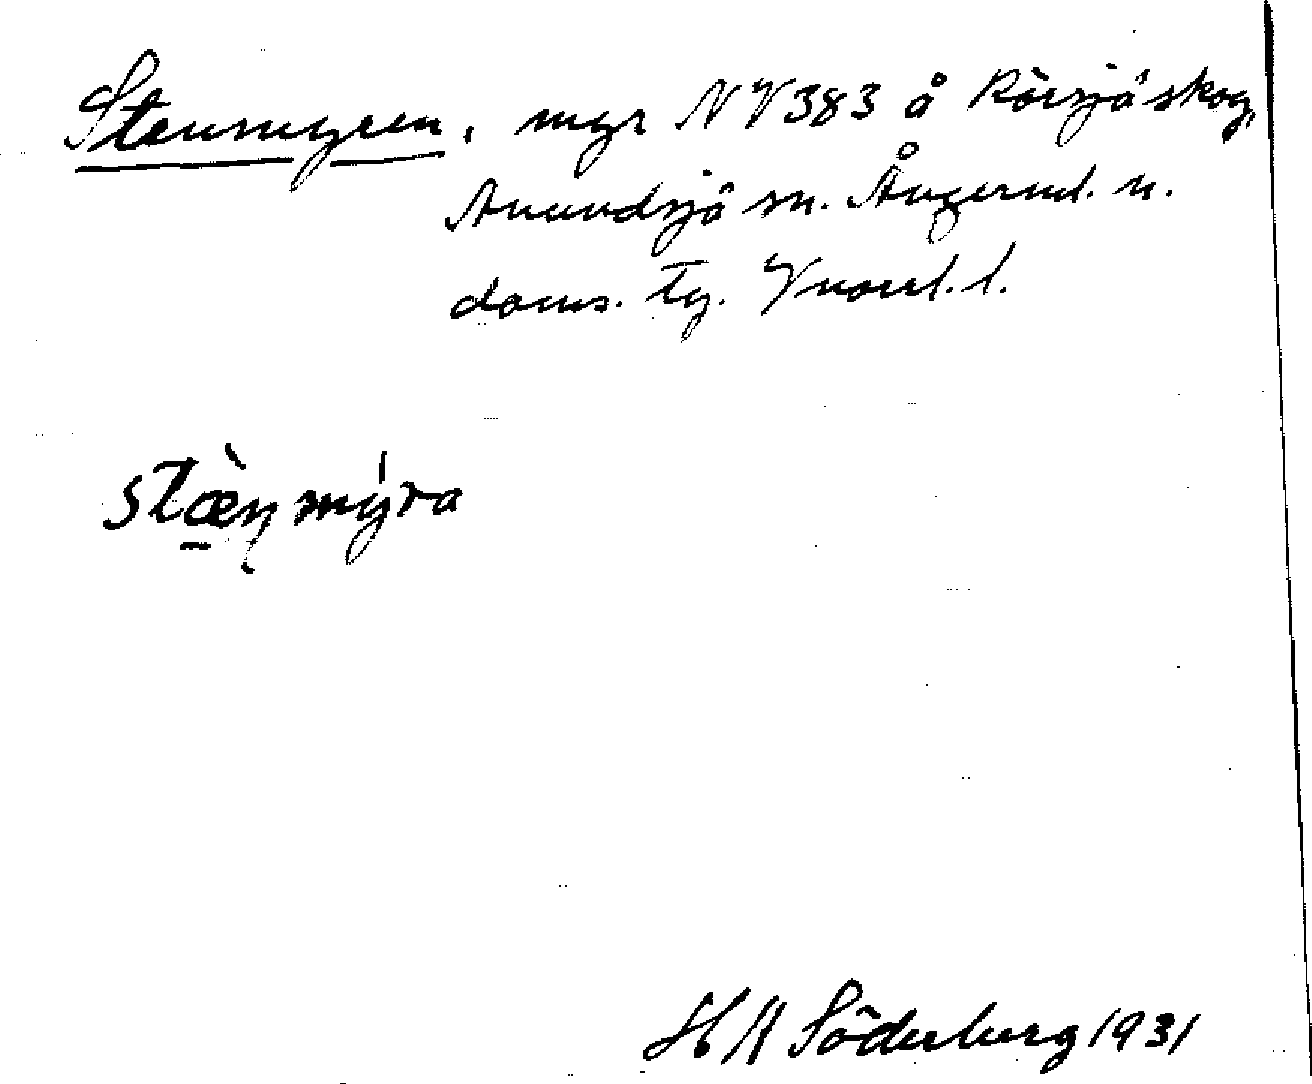 Stenmyren, myr NV 383 å Rörsjöskog,
Anundsjö sn. Ångerml. n.
doms. Tg. Vnorrl. l.
stæ̀n mýra
H A Söderberg 1931